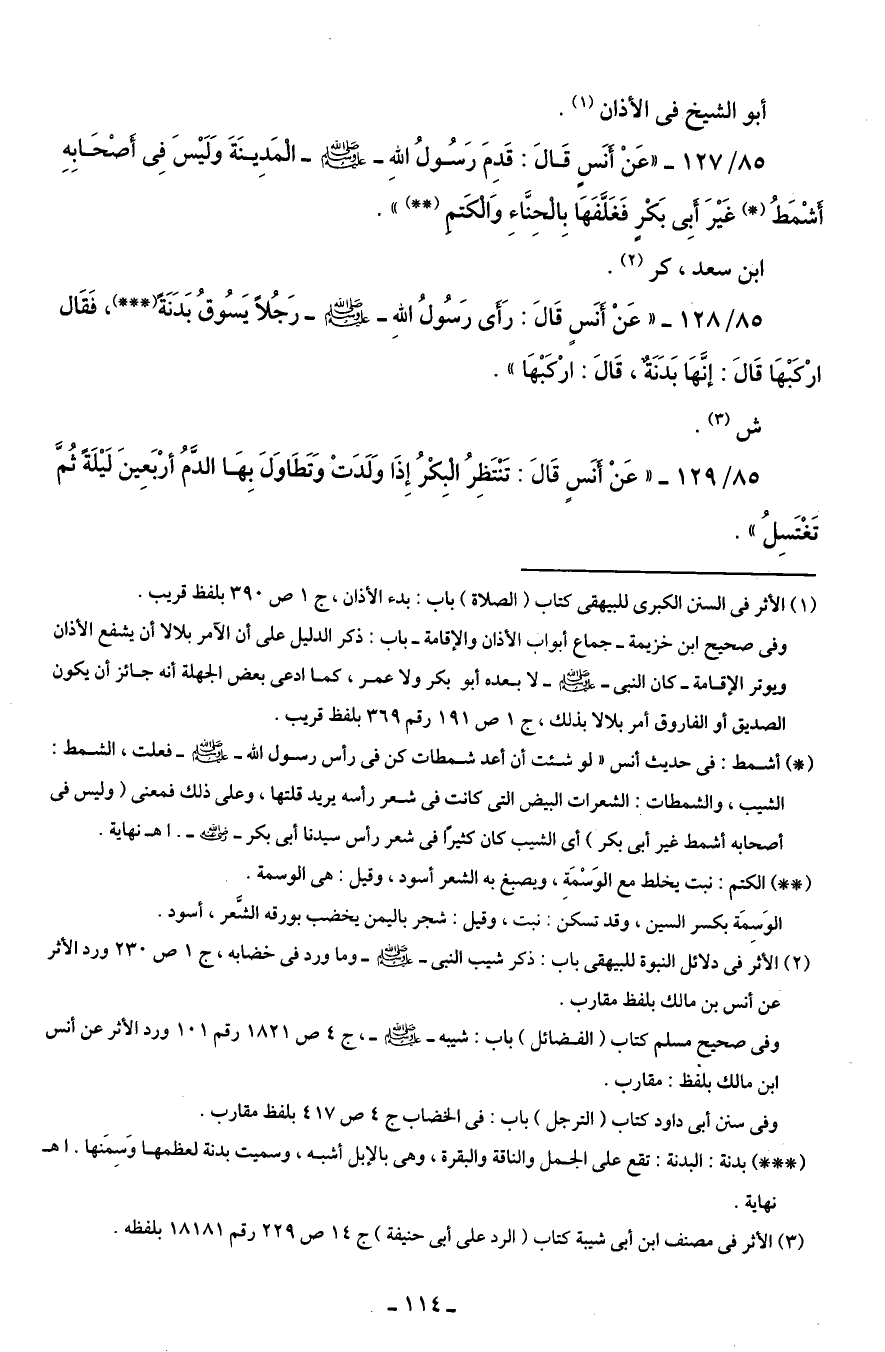 أبو الشيخ فى الأذان (١) .
١٢٧/٨٥ ـ «عَنْ أَنَسٍ قَالَ : قَدِمَ رَسُولُ اللهِ ـ ﷺ ـ الْمَدِينَةَ وَلَيْسَ فِى أَصْحَابِهِ
أَشْمَطُ (*) غَيْرَ أَبِى بَكْرٍ فَغَلَّفَهَا بِالْحِنَّاءِ وَالْكَتمِ (**) » .
ابن سعد ، كر (٢) .
١٢٨/٨٥ ـ « عَنْ أَنَسٍ قَالَ : رَأَى رَسُولُ اللهِ ـ ﷺ ـ رَجُلاً يَسُوقُ بَدَنَةً (***) ، فَقَال
ارْكَبْهَا قَالَ : إِنَّهَا بَدَنَةٌ ، قَالَ : ارْكَبْهَا » .
ش (٣) .
١٢٩/٨٥ ـ « عَنْ أَنَسٍ قَالَ : تَنْتَظِرُ الْبِكْرُ إِذَا وَلَدَتْ وَتَطَاوَلَ بِهَا الدَّمُ أَرْبَعِينَ لَيْلَةً ثُمَّ
تَغْتَسِلُ » .
(١) الأثر فى السنن الكبرى للبيهقى كتاب ( الصلاة ) باب : بدء الأذان ، ج ١ ص ٣٩٠ بلفظ قريب .
وفى صحيح ابن خزيمة ـ جماع أبواب الأذان والإقامة ـ باب : ذكر الدليل على أن الآمر بلالا أن يشفع الأذان
ويوتر الإقامة ـ كان النبى ـ ﷺ ـ لا بعده أبو بكر ولا عمر ، كما ادعى بعض الجهلة أنه جائز أن يكون
الصديق أو الفاروق أمر بلالا بذلك ، ج ١ ص ١٩١ رقم ٣٦٩ بلفظ قريب .
(*) أشمط : فى حديث أنس « لو شئت أن أعد شمطات كن فى رأس رسول الله ـ ﷺ ـ فعلت ، الشمط :
الشيب ، والشمطات : الشعرات البيض التى كانت فى شعر رأسه يريد قلتها ، وعلى ذلك فمعنى ( وليس فى
أصحابه أشمط غير أبى بكر ) أى الشيب كان كثيرًا فى شعر رأس سيدنا أبى بكر ـ رضي الله عنه ـ . ا هـ نهاية .
(**) الكتم : نبت يخلط مع الوَسْمَةِ ، ويصبغ به الشعر أسود ، وقيل : هى الوسمة .
الوَسِمَة بكسر السين ، وقد تسكن : نبت ، وقيل : شجر باليمن يخضب بورقه الشَّعر ، أسود .
(٢) الأثر فى دلائل النبوة للبيهقى باب : ذكر شيب النبى ـ ﷺ ـ وما ورد فى خضابه ، ج ١ ص ٢٣٠ ورد الأثر
عن أنس بن مالك بلفظ مقارب .
وفى صحيح مسلم كتاب ( الفضائل ) باب : شيبه ـ ﷺ ـ ، ج ٤ ص ١٨٢١ رقم ١٠١ ورد الأثر عن أنس
ابن مالك بلفظ : مقارب .
وفى سنن أبى داود كتاب ( الترجل ) باب : فى الخضاب ج ٤ ص ٤١٧ بلفظ مقارب .
(***) بدنة : البدنة : تقع على الجمل والناقة والبقرة ، وهى بالإبل أشبه ، وسميت بدنة لعظمها وَسِمَنها . ا هـ
نهاية .
(٣) الأثر فى مصنف ابن أبى شيبة كتاب ( الرد على أبى حنيفة ) ج ١٤ ص ٢٢٩ رقم ١٨١٨١ بلفظه .
ـ ١١٤ ـ